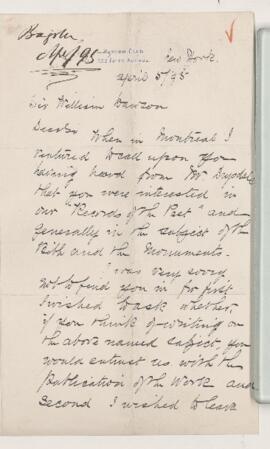 Bagster
Apl/95
New York
April 5/95
Sir William Dawson
Dear Sir When in Montreal I
ventured to call upon you
having heard from Mr Drysdale
that you were interested in
our "Records of the Past" and
generally in the subject of the
Bible and the Monuments.
I was very sorry
not to find you in for first
I wished to ask whether
if you think of writing on
the above named subject, you
would entrust us with the
Publication of the Work and
second I wished to leave